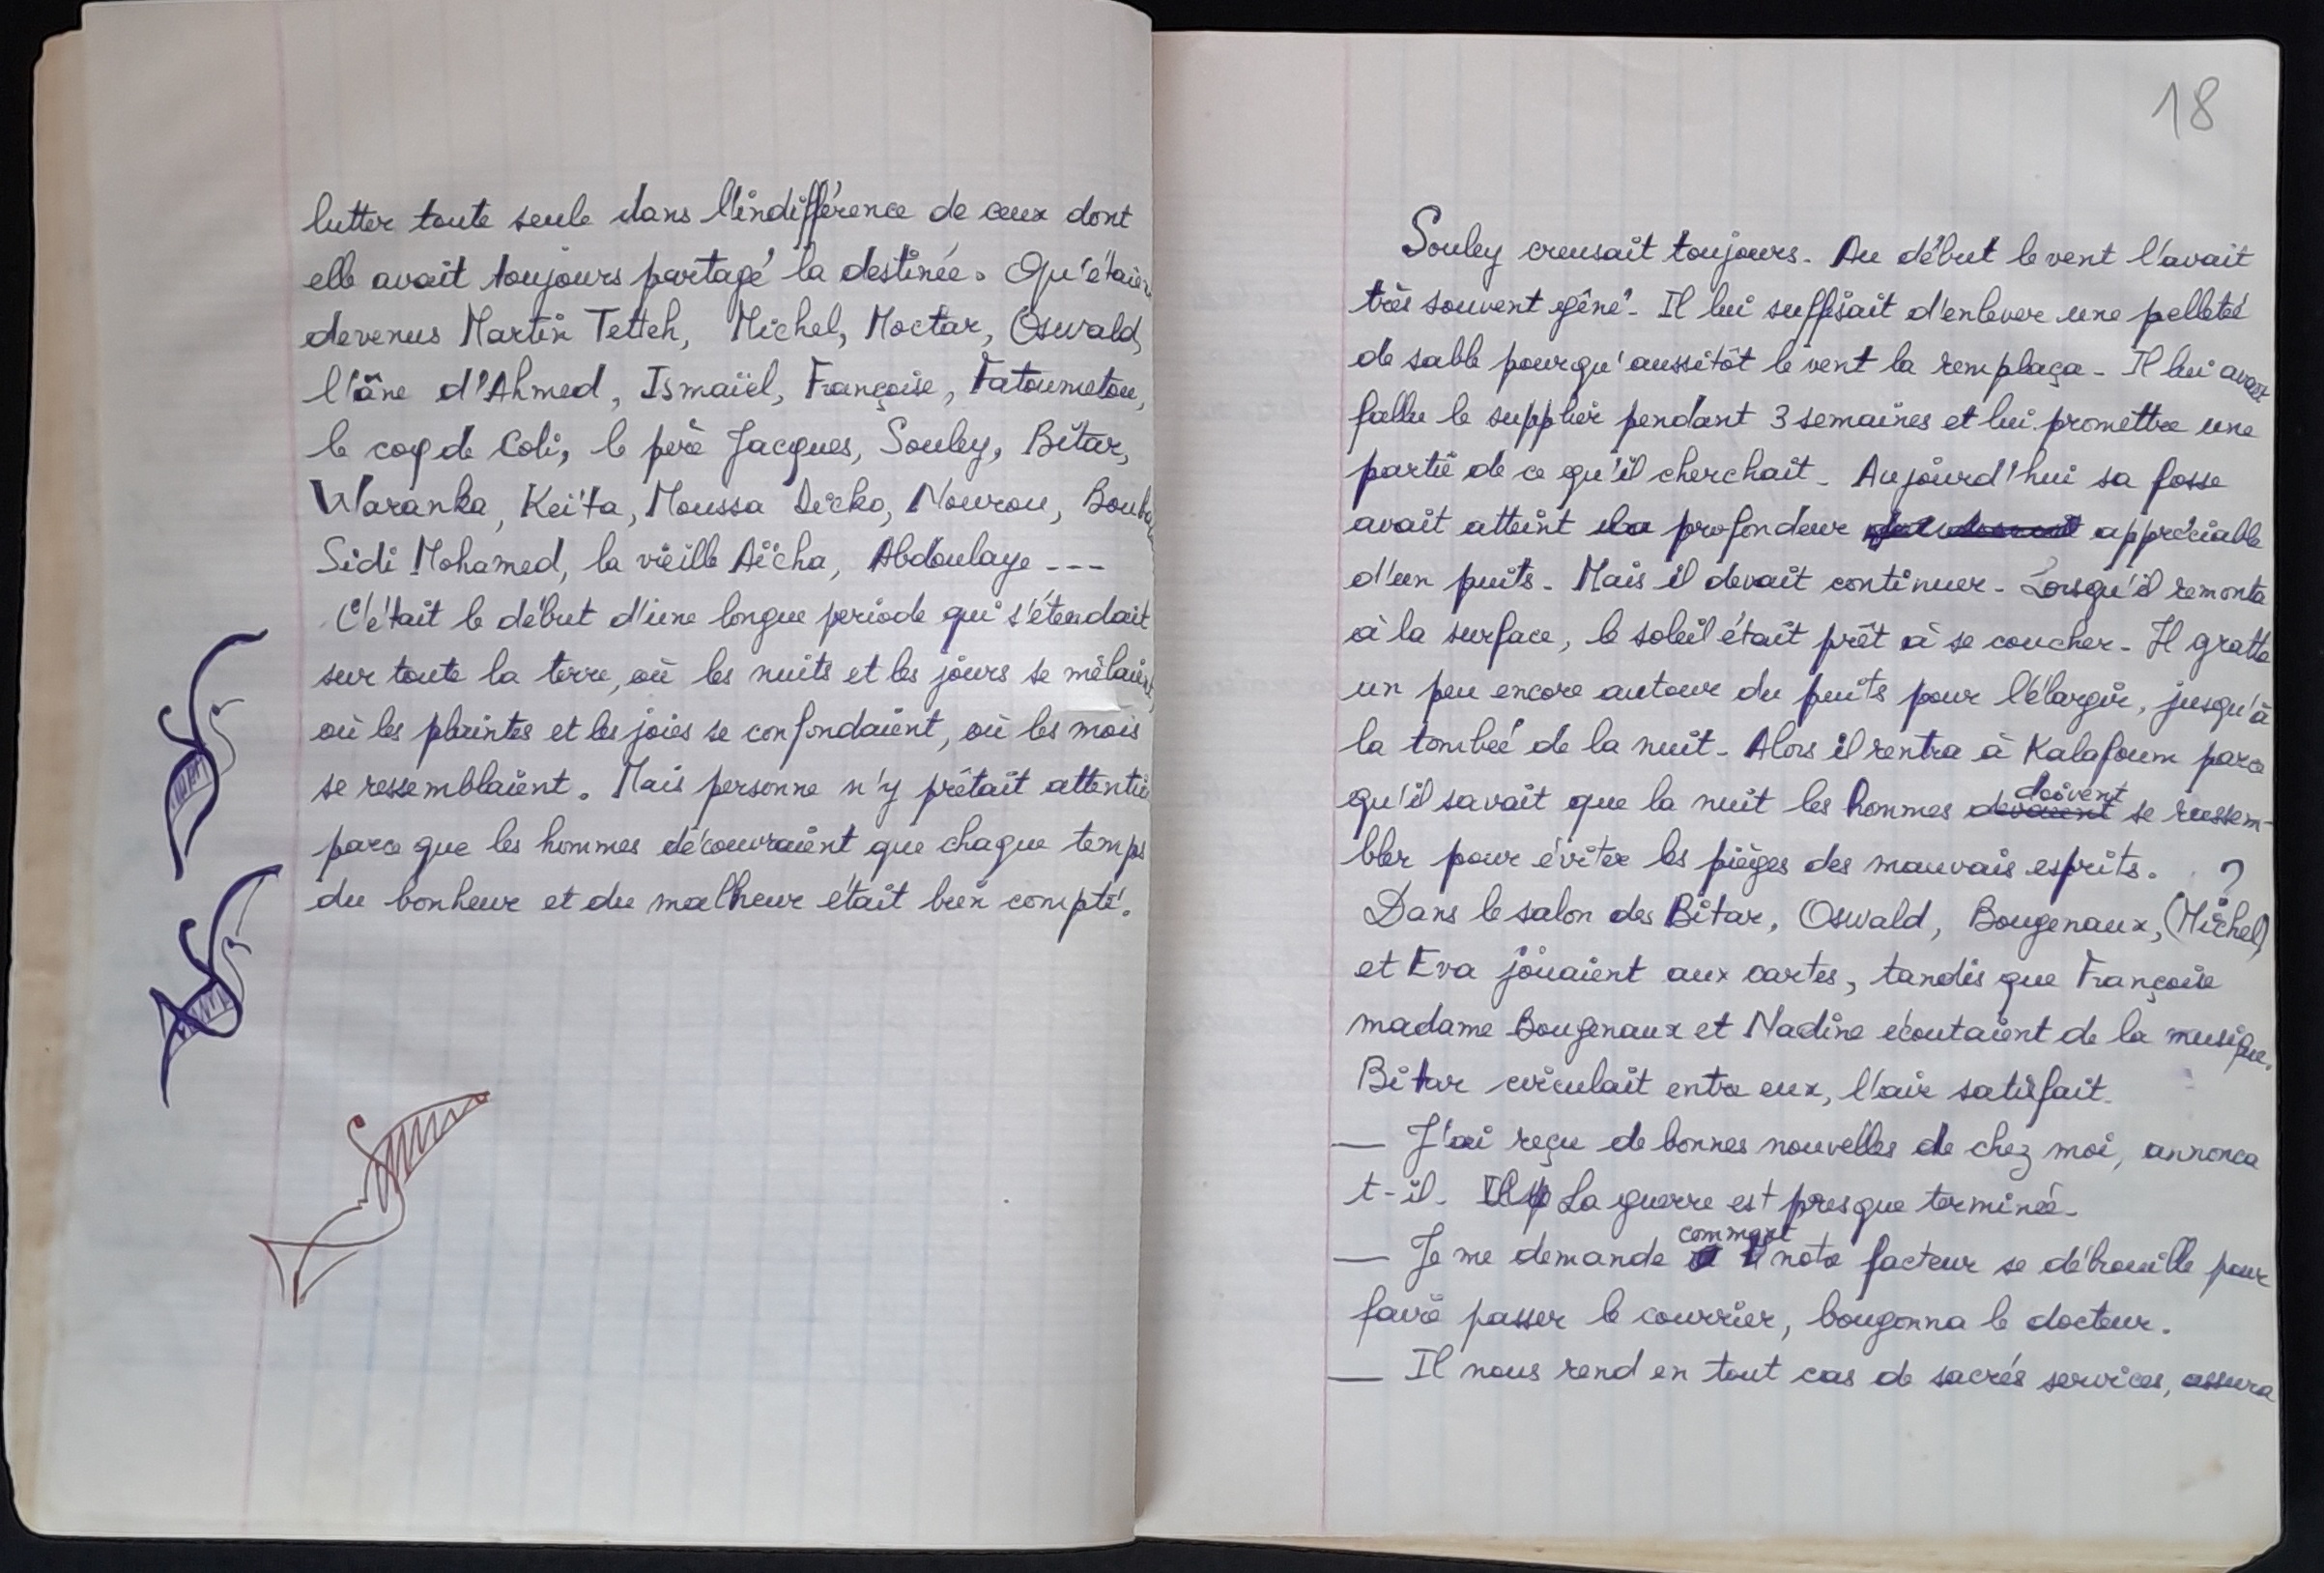 lutter toute seule dans l'indifférence de ceux dont
elle avait toujours partagé la destinée. Qu'étaien
devenus Martin Tetteh, Michel, Moctar, Oswald,
l'âne d'Ahmed, Ismaïel, Françoise, Fatoumetou,
le coq de Coli, le père Jacques, Souley, Bitar,
Waranka, Keïta, Moussa Dicko, Nourou,
Sidi Mohamed, la vieille Aïcha, Abdoulaye ---
C'était le début d'une longue période qui s'étendait
sur toute la terre, où les nuits et les jours se mêlaient,
où les plaintes et les joies se confondaient, où les mois
se ressemblaient. Mais personne n'y prêtait attention
parce que les hommes découvraient que chaque temps
du bonheur et du malheur était bien compté.
18
Souley creusait toujours. Au début le vent l'avait
très souvent gêné. Il lui suffisait d'enlever une pelleteé
de sable pour qu'aussitôt le vent la remplaça. Il lui avait
fallu le supplier pendant 3 semaines et lui promettre une
partie de ce qu'il cherchait. Aujourd'hui sa fosse
avait atteint la profondeur appréciable
d'un puits. Mais il devait continuer. Lorsqu'il remonta
à la surface, le soleil était prêt à se coucher. Il gratta
un peu encore autour du puits pour l'élargir, jusqu'à
la tombeé de la nuit. Alors il rentra à Kalafoum parce
doivent
qu'il savait que la nuit les hommes devaient se rassem-
bler pour éviter les pièges des mauvais esprits. ?
Dans le salon des Bitar, Oswald, Bougenaux, (Michel)
et Eva jouaient aux cartes, tandis que Françoise
madame Bougenaux et Nadine écoutaient de la musique.
Bitar circulait entre eux, l'air satisfait.
— J'ai reçu de bonnes nouvelles de chez moi, annonca
t-il. La guerre est presque terminée.
comment
— Je me demande notre facteur se débrouille pour
faire passer le courrier, bougonna le docteur.
— Il nous rend en tout cas de sacrés services, assura